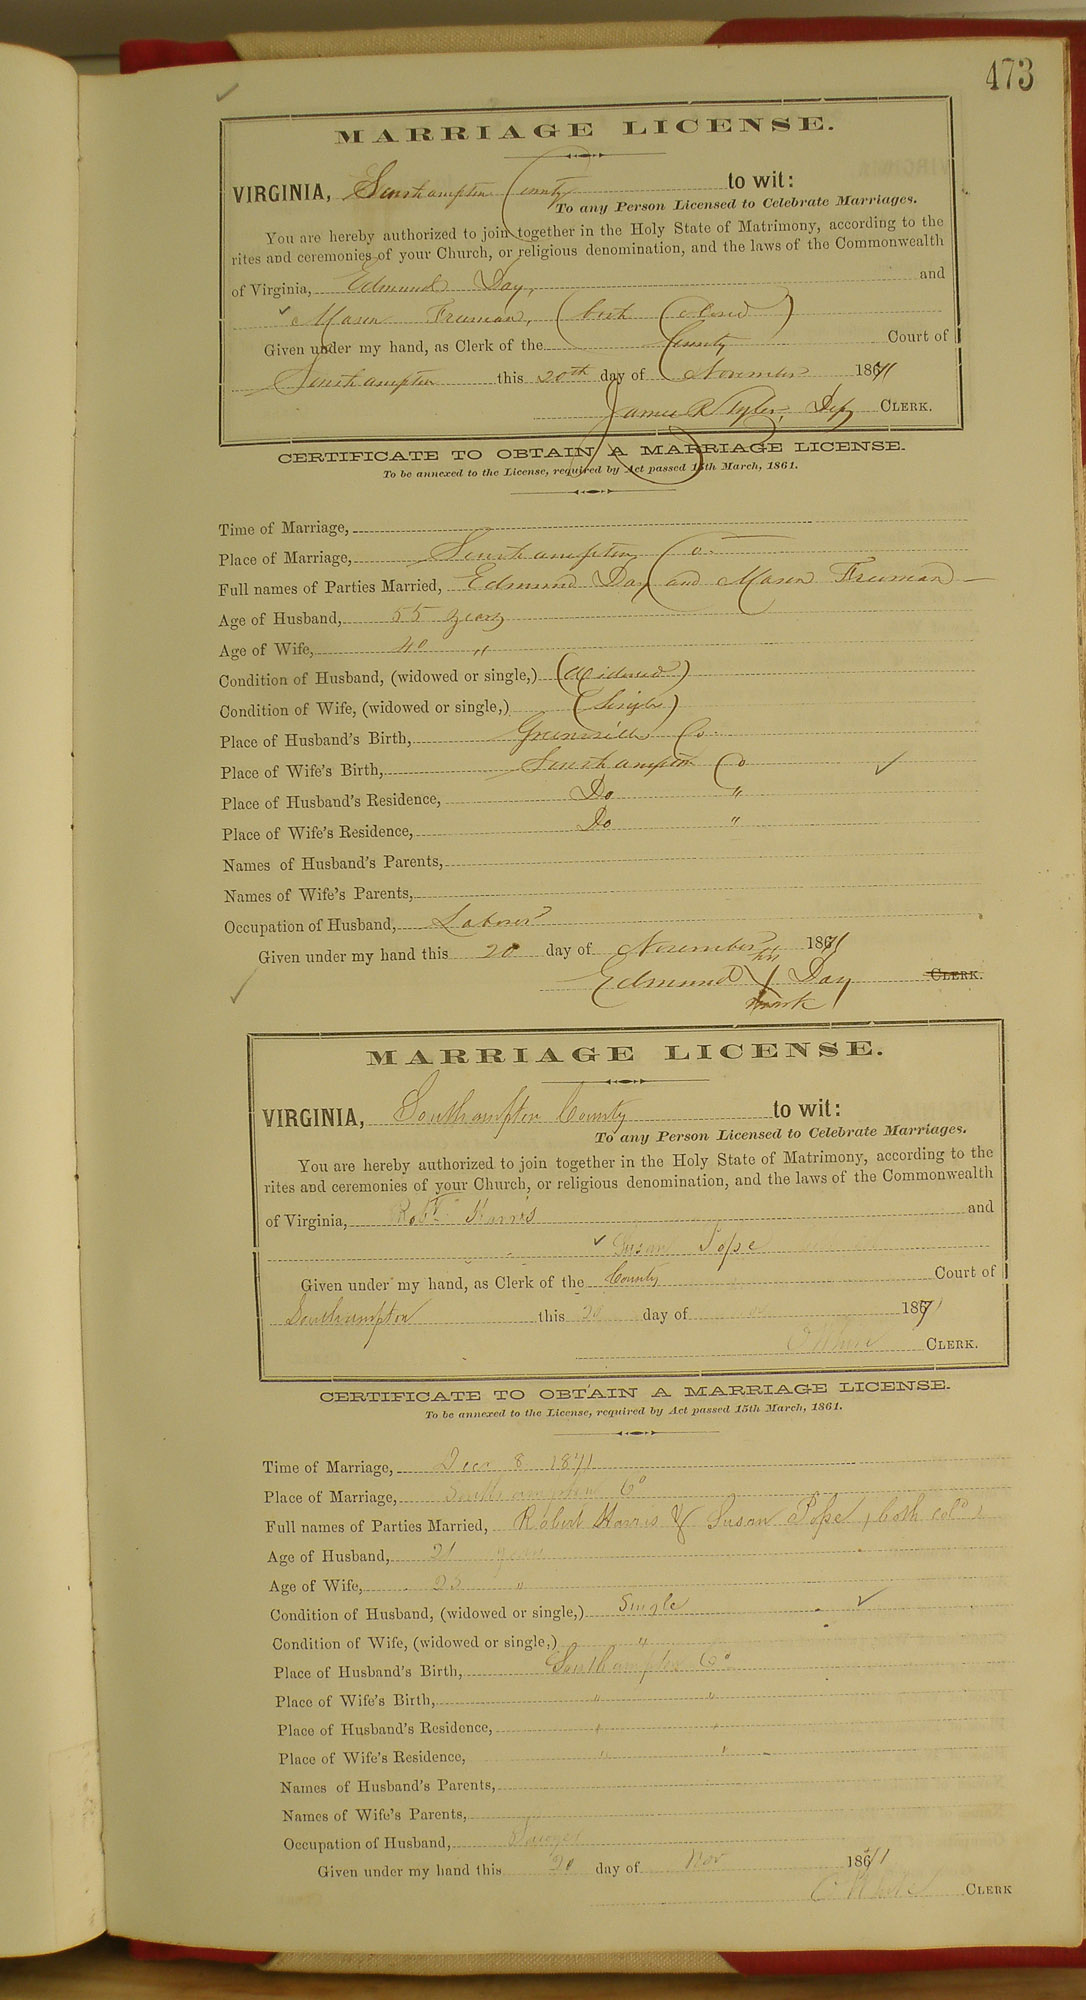 473
MARRIAGE LICENSE.
VIRGINIA, Southampton County to wit:
To any Person Licensed to Celebrate Marriages.
You are hereby authorized to join together in the Holy State of Matrimony, according to the
rites and ceremonies of your Church, or religious denomination, and the laws of the Commonwealth
of Virginia, Edmund Day, and
Mason Freeman, (both Colored)
Given under my hand, as Clerk of the County Court of
Southampton this 20th day of November 1871
James R Tyler, Dep CLERK.
CERTIFICATE TO OBTAIN A MARRIAGE LICENSE.
To be annexed to the License, required by Act passed 15th March, 1861.
Time of Marriage,
Place of Marriage, Southampton Co.
Full names of Parties Married, Edmund Day and Mason Freeman
Age of Husband, 55 years
Age of Wife, 40 "
Condition of Husband, (widowed or single,) (Widowed)
Condition of Wife, (widowed or single,) (Single)
Place of Husband's Birth, Greensville Co.
Place of Wife's Birth, Southampton Co
Place of Husband's Residence, Do "
Place of Wife's Residence, Do "
Names of Husband's Parents,
Names of Wife's Parents,
Occupation of Husband, Laborer
Given under my hand this 20 day of November 1871
his
Edmund X Day CLERK.
mark
MARRIAGE LICENSE.
VIRGINIA, Southampton County to wit:
To any Person Licensed to Celebrate Marriages.
You are hereby authorized to join together in the Holy State of Matrimony, according to the
rites and ceremonies of your Church, or religious denomination, and the laws of the Commonwealth
of Virginia, Robt Harris and
Susan Pope
Given under my hand, as Clerk of the County Court of
Southampton this 20 day of 1871
White CLERK.
CERTIFICATE TO OBTAIN A MARRIAGE LICENSE.
To be annexed to the License, required by Act passed 15th March, 1861.
Time of Marriage, Decr 8 1871
Place of Marriage, Southampton Co
Full names of Parties Married, Robert Harris & Susan Pope, (both cold)
Age of Husband, 21 years
Age of Wife, "
Condition of Husband, (widowed or single,) Single
Condition of Wife, (widowed or single,) "
Place of Husband's Birth, Southampton Co
Place of Wife's Birth, " "
Place of Husband's Residence, " "
Place of Wife's Residence, " "
Names of Husband's Parents,
Names of Wife's Parents,
Occupation of Husband,
Given under my hand this 20 day of Nov 1871
White CLERK